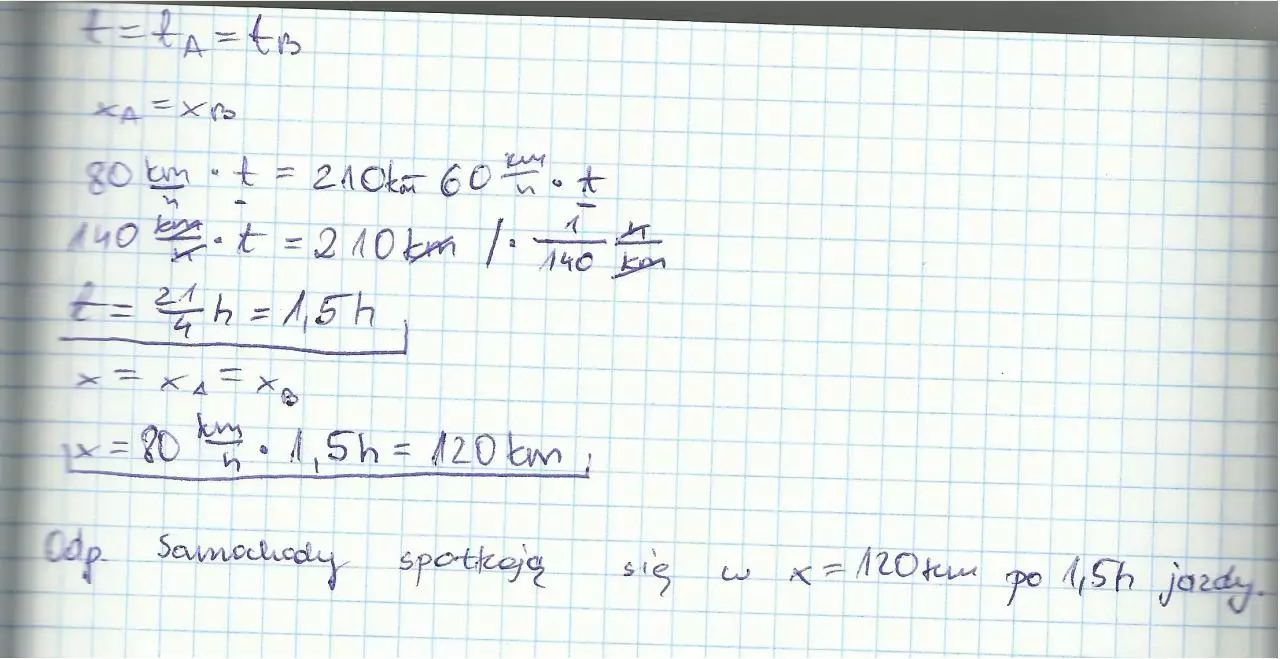 t = t_A = t_B
x_A = x_B
80 km/h · t = 210km - 60 km/h · t
140 km/h · t = 210km /· 1/140 h/km
t = 21/4 h = 1,5h
x = x_A = x_B
x = 80 km/h · 1,5h = 120km
Odp. Samochody spotkają się w x = 120km po 1,5h jazdy.